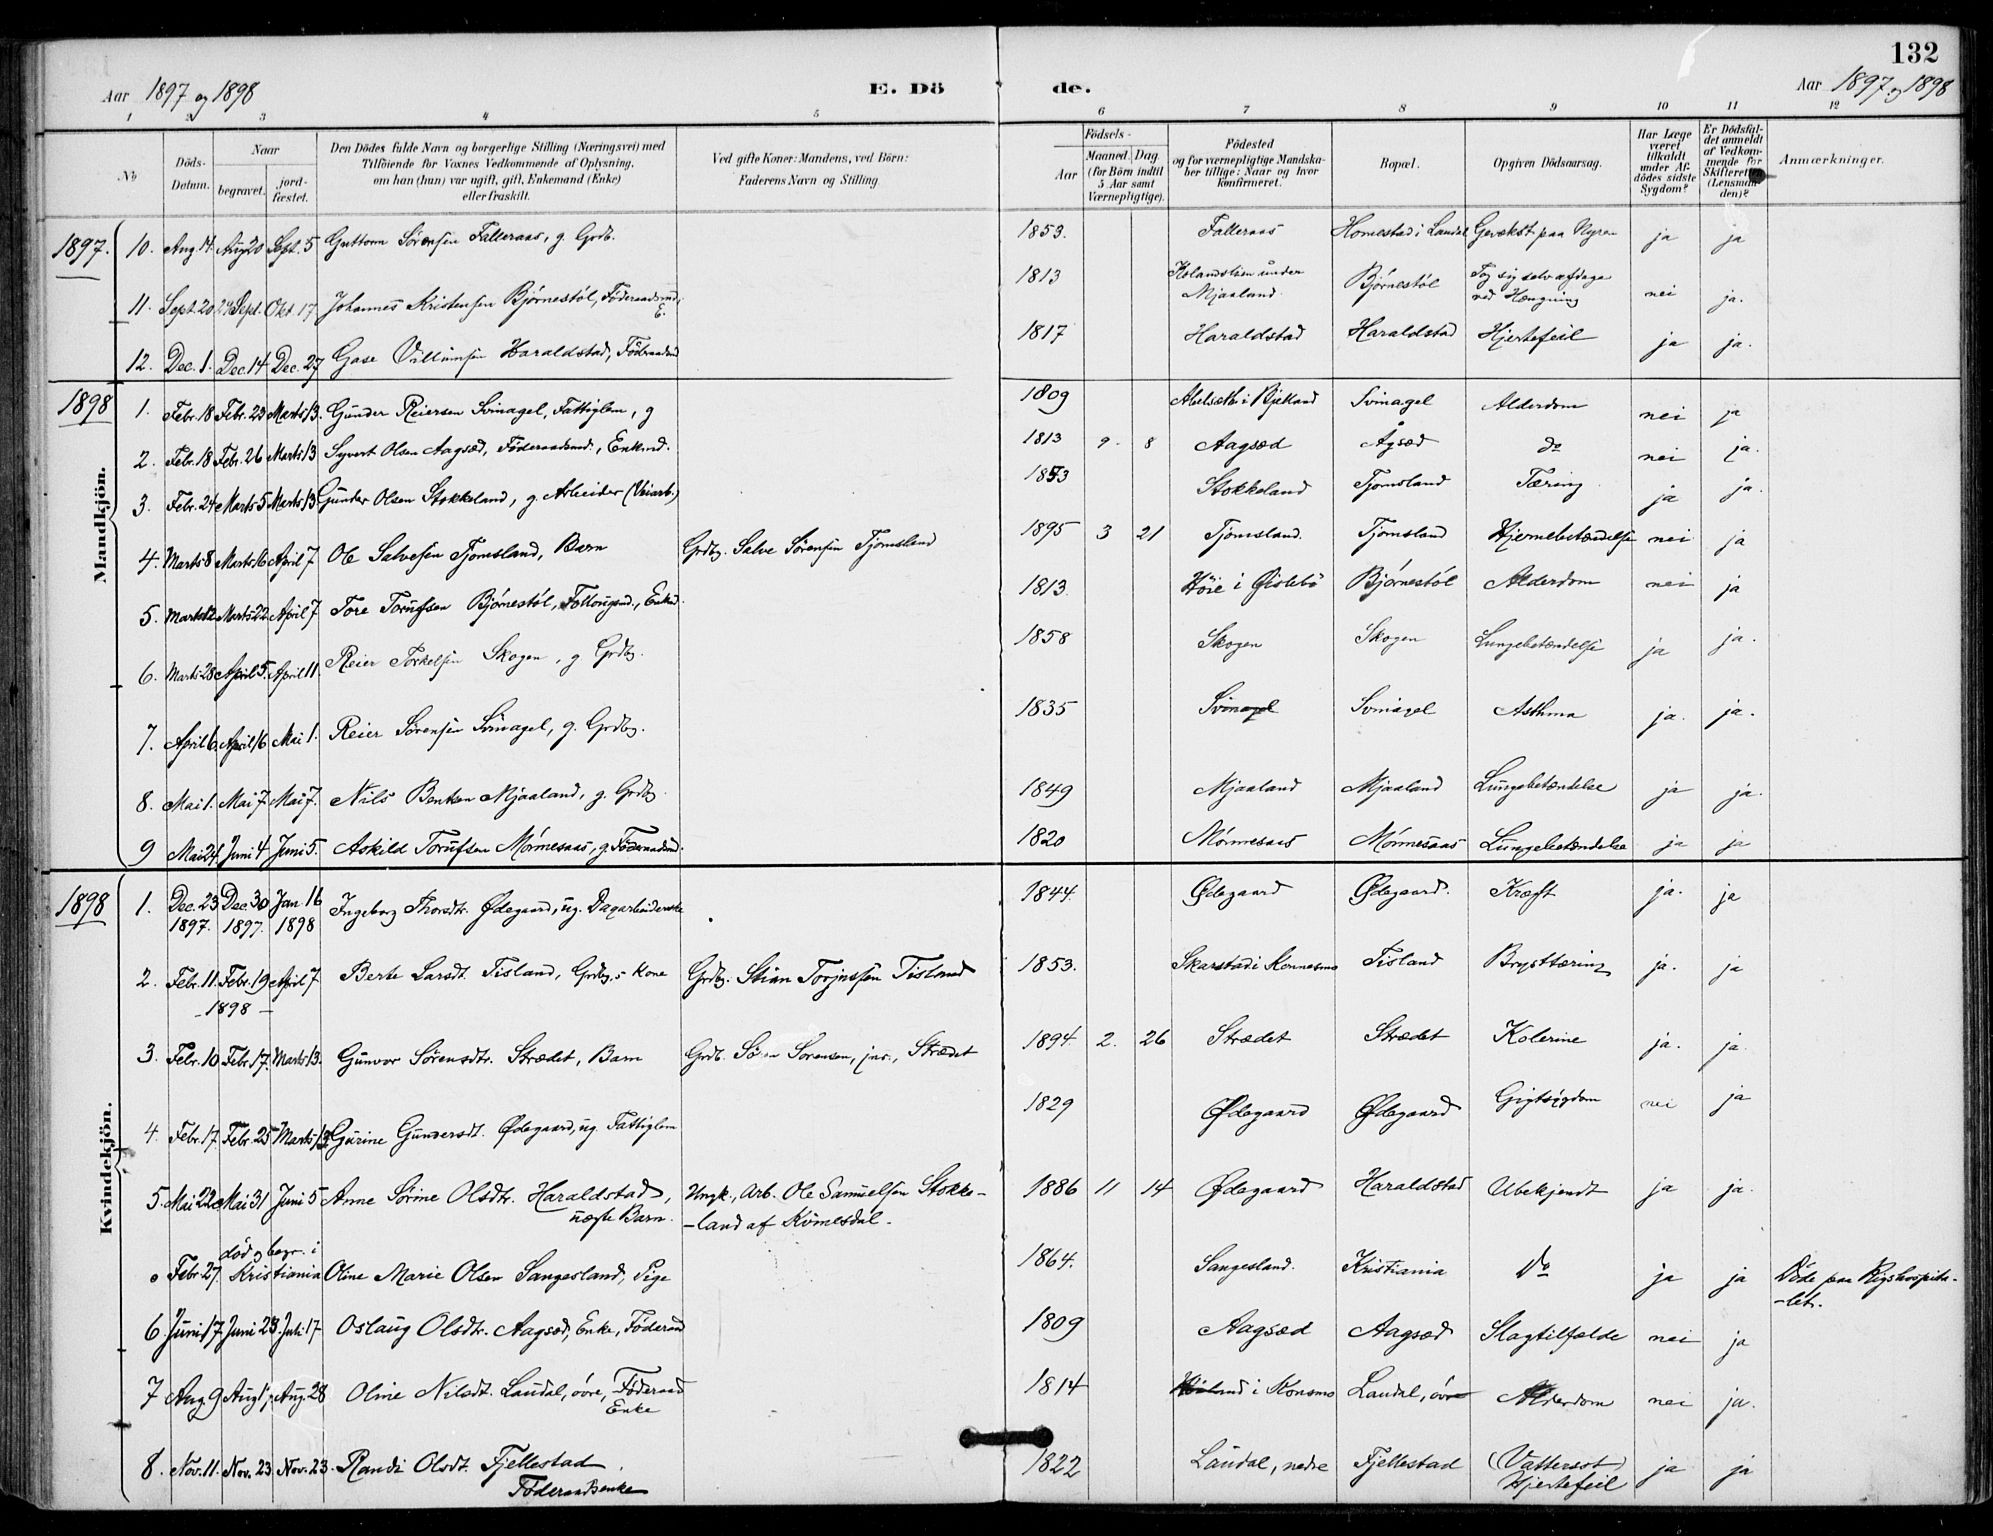 132
Aar 1897 og 1898 E. Dö de. Aar 1897 og 1898
1 2 3 4 5 6 7 8 9 10 11 12
No
Döds-Datum.
Naar
begravet. jord-fæstet.
Den Dödes fulde Navn og borgerlige Stilling (Næringsvei) med
Tilföiende for Voxnes Vedkommende af Oplysning,
om han (hun) var ugift, gift, Enkemand (Enke)
eller fraskilt.
Ved gifte Koner: Mandens, ved Börn:
Faderens Navn og Stilling.
Födsels-
Aar Maaned. Dag.
(for Börn indtil
5 Aar samt
Værnepligtige).
Födested
og for værnepligtige Mandska-
ber tillige: Naar og hvor
konfirmeret.
Bopæl.
Opgiven Dödsaarsag.
Har Læge
været
tilkaldt
under Af-
dödes sidste
Sygdom?
Er Dödsfal-
det anmeldt
af Vedkom-
mende for
Skifteretten
(Lensman-
den)?
Anmærkninger.
1897. 10. Aug. 14. Aug 20 Sept. 5 Guttorm Sörensen Falleraas, g. Grdb. 1853. Falleraas Homestad i Laudal Gevækst paa Nyren ja ja
11. Sept. 20 Sept. Okt. 17 Johannes Kristensen Bjørnestöl, Föderaadsmd, E. 1813 under Mjaaland. Bjørnestöl Tog sig selv afdage ved Hængning nei ja.
12. Dec. 1. Dec. 14 Dec. 27 Gase Villumsen Haraldstad, Föderaadsmd 1817 Haraldstad Haraldstad Hjertefeil ja ja.
Mandkjön.
1898 1. Febr. 18 Febr. 23 Marts 13. Gunder Reiersen Svinagel, Fattiglem, g 1809 i Bjelland Svinagel Alderdom nei ja
2. Febr. 18 Febr. 26 Marts 13 Syvert Olsen Aagsæd, Föderaadsmd., Enkmd. 1813 9. 8 Aagsæd Ågsæd do nei ja.
3. Febr. 24 Marts 5 Marts 13 Gunder Olsen Stokkeland, g. Arbeider (Veiarb.) 1853 Stokkeland Tjomsland Tæring ja ja.
4. Marts 8 Marts 16 April 7 Ole Salvesen Tjomsland, Barn Grdbg. Salve Sörensen Tjomsland 1895 3 21 Tjomsland. Tjomsland Hjernebetændelse nei ja
5. Marts 12 Marts 22 April 7. Tore Torufsen Bjørnestöl, Enkmd. 1813. Höie i Øislebö Bjørnestöl Alderdom nei ja
6. Marts 28 April 5. April 11. Reier Torkelsen Skogen, g Grdbg. 1858 Skogen Skogen Lungebetændelse ja ja.
7. April 6. April 16 Mai 1. Reier Sörensen Svinagel, g. Grdbg. 1835 Svinagel Svinagel Asthma ja. ja.
8. Mai 1. Mai 7. Mai 7. Nils Bentsen Mjaaland, g. Grdbg 1849 Mjaaland Mjaaland Lungebetændelse ja ja.
9 Mai 24 Juni 4 Juni 5. Askild Torufsen Mörmesaas, g. Föderaadsmd. 1820 Mörmesaas Mörmesaas Lungebetændelse ja ja
Kvindekjön.
1898 1. Dec. 23 1897. Dec. 30 1897. Jan 16 1898 Ingeborg Thorsdtr. Ødegaard, ug. Dagarbeiderske 1844. Ødegaard Ødegaard. Kræft ja. ja
2. Febr. 11. Febr. 19 April 7 Berte Larsdt. Tisland, Grdbg.s Kone Grdbg. Stian Torjussen Tisland 1853. Skarstad i Konnesmo Tisland Brysttæring ja. ja
- 1898 -
3. Febr. 10 Febr. 17. Marts 13. Gunvor Sörensdtr. Strædet, Barn Grdb. Sören Sörensen, jnr., Strædet 1894. 2. 26 Strædet Strædet Kolerine ja. ja.
4. Febr. 17. Febr. 25 Marts 13 Gurine Gundersdt. Ødegaard, ug. Fattiglem 1829 Ødegaard Ødegaard Gigtsygdom nei ja
5. Mai 22 Mai 31 Juni 5 Anne Sörine Olsdtr. Haraldstad, uægte Barn. Ungk., Arb. Ole Samuelsen Stokke-
-land af Kömesdal. 1886 11 14 Ødegaard Haraldstad Ubekjendt ja ja.
o Febr. 27. död og begr. i Kristiania Oline Marie Olsen Sangesland, Pige 1864. Sangesland. Kristiania Do ja ja Döde paa Rigshospita-
-let.
6. Juni 17. Juni 23. Juli 17. Oslaug Olsdtr. Aagsæd, Enke, Föderaad 1809 Aagsæd Aagsæd Slagtilfælde nei ja
7 Aug. 9 Aug. Aug. 28 Oline Nilsdt. Laudal, övre, Föderaad Enke 1814 i Konsmo Laudal, övre Alderdom nei ja.
8. Nov. 11. Nov. 23. Nov. 23. Randi Olsdt. Fjellestad Föderaadsenke 1822 Laudal, nedre Fjellestad (Vattersot) Hjertefeil ja ja